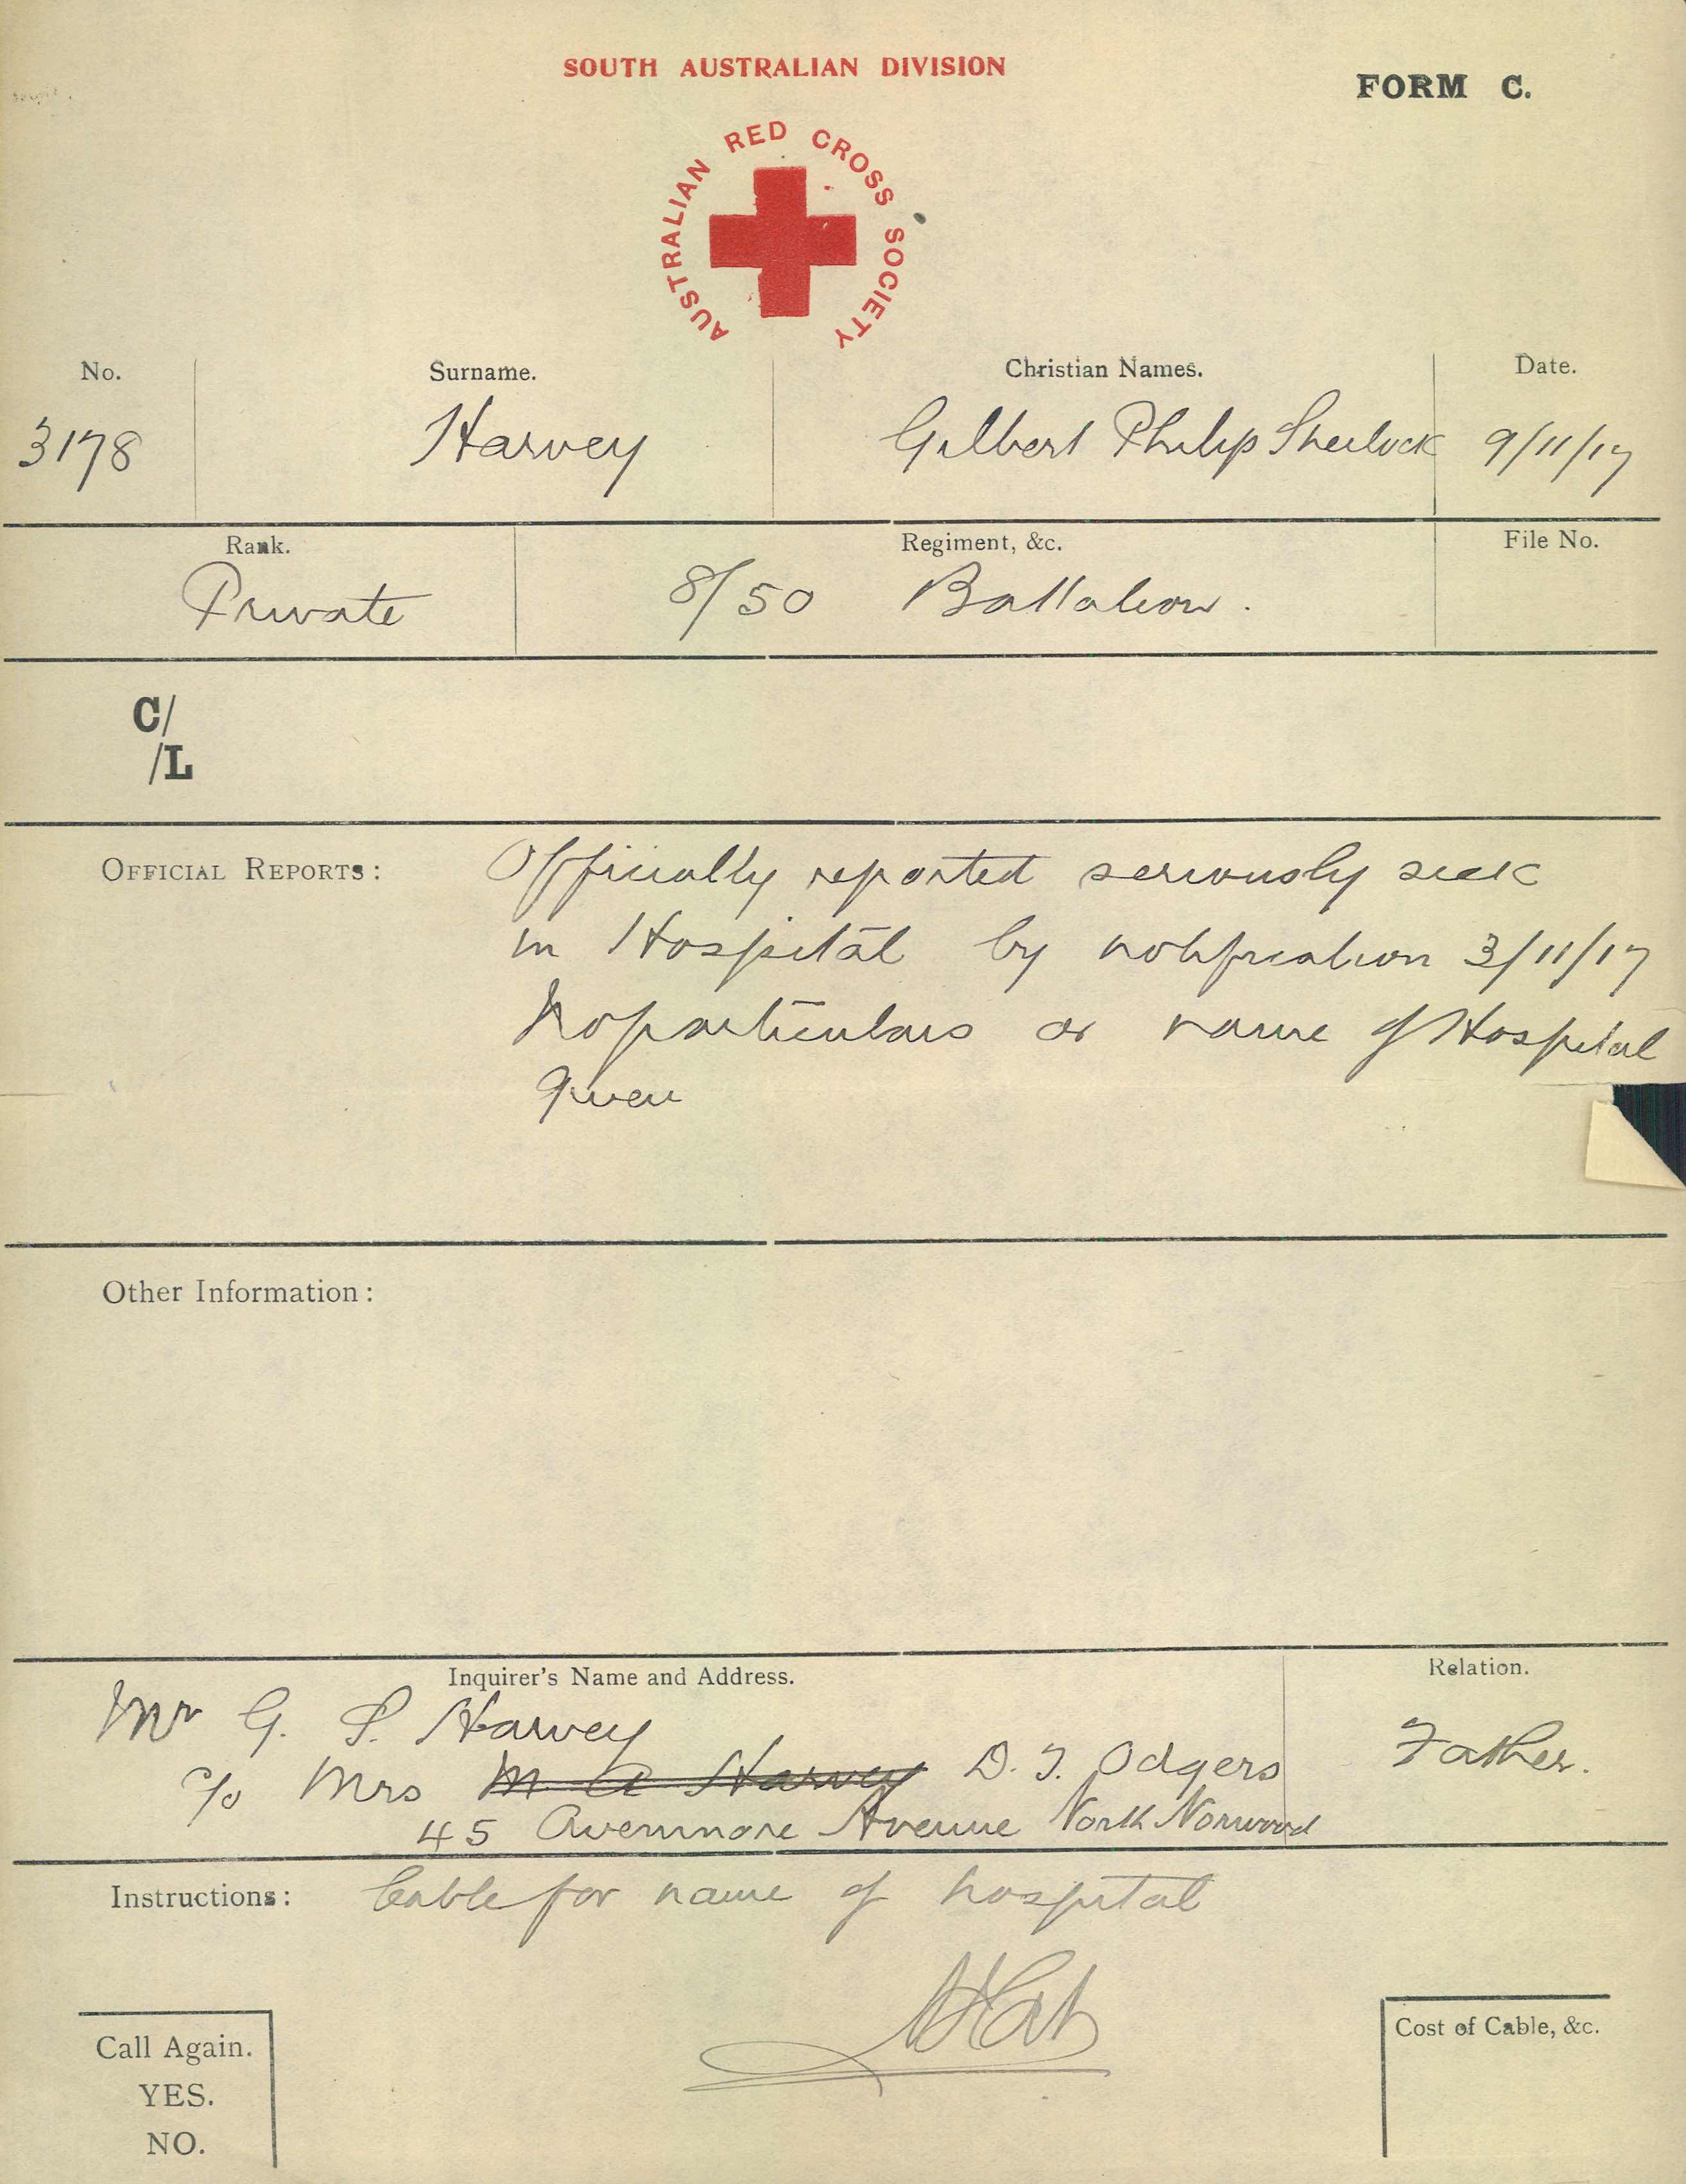 SOUTH AUSTRALIAN DIVISION
FORM C.
AUSTRALIAN RED CROSS SOCIETY
No. Surname. Christian Names. Date.
3178 Harvey Gilbert Philip Sherlock 9/11/17
Rank. Regiment, &c. File No.
Private 8/50 Battalion.
C/
/L
OFFICIAL REPORTS: Officially reported seriously sick
in Hospital by notification 3/11/17
No particulars or name of Hospital
given
Other Information:
Inquirer's Name and Address. Relation.
Mr G. S. Harvey Father.
c/o Mrs M A Harvey D. J. Odgers
45 Avenmore Avenue North Norwood
Instructions: Cable for name of hospital
Call Again.
YES.
NO.
Cost of Cable, &c.